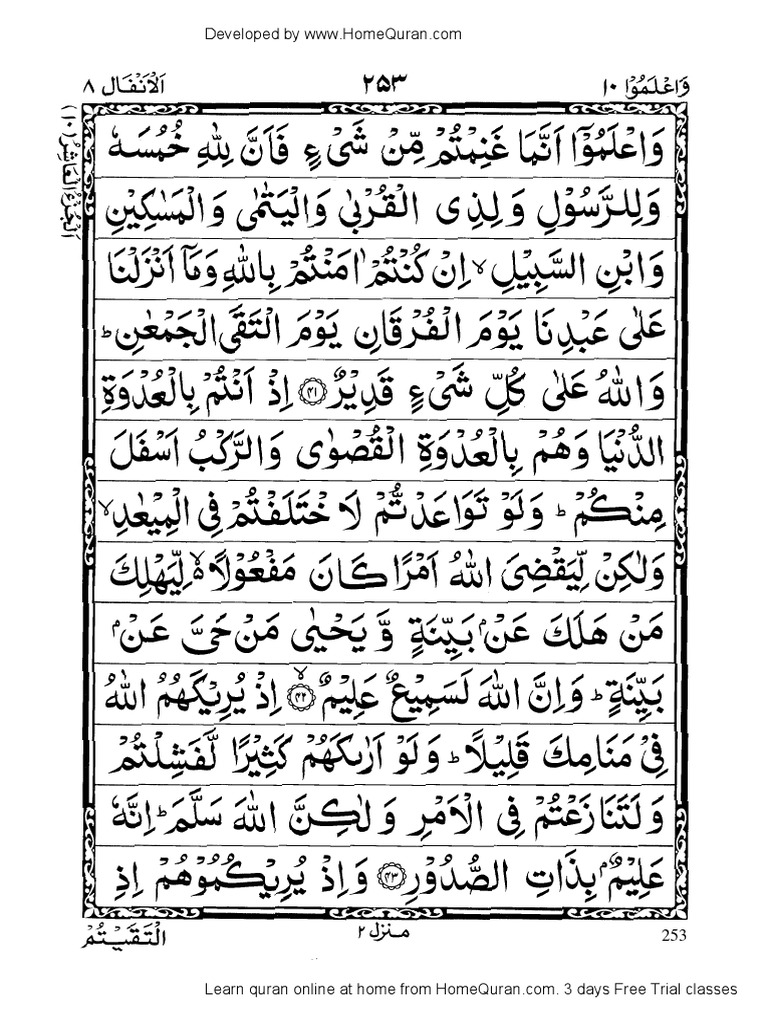 Developed by www.HomeQuran.com
وَاعْلَمُوْۤا ۱۰
۲۵۳
اَلْاَنْفَال ۸
اَلْجُزْءُ الْعَاشِرُ (۱۰)
وَاعْلَمُوْۤا اَنَّمَا غَنِمْتُمْ مِّنْ شَیْءٍ فَاَنَّ لِلّٰهِ خُمُسَهٗ
وَلِلرَّسُوْلِ وَلِذِی الْقُرْبٰی وَالْیَتٰمٰی وَالْمَسٰكِیْنِ
وَابْنِ السَّبِیْلِ ۙ اِنْ كُنْتُمْ اٰمَنْتُمْ بِاللّٰهِ وَمَاۤ اَنْزَلْنَا
عَلٰی عَبْدِنَا یَوْمَ الْفُرْقَانِ یَوْمَ الْتَقَی الْجَمْعٰنِ ؕ
وَاللّٰهُ عَلٰی كُلِّ شَیْءٍ قَدِیْرٌ ﴿۴۱﴾ اِذْ اَنْتُمْ بِالْعُدْوَةِ
الدُّنْیَا وَهُمْ بِالْعُدْوَةِ الْقُصْوٰی وَالرَّكْبُ اَسْفَلَ
مِنْكُمْ ؕ وَلَوْ تَوَاعَدْتُّمْ لَاخْتَلَفْتُمْ فِی الْمِیْعٰدِ ۙ
وَلٰكِنْ لِّیَقْضِیَ اللّٰهُ اَمْرًا كَانَ مَفْعُوْلًا ۙ۬ لِّیَهْلِكَ
مَنْ هَلَكَ عَنْۢ بَیِّنَةٍ وَّیَحْیٰی مَنْ حَیَّ عَنْۢ
بَیِّنَةٍ ؕ وَاِنَّ اللّٰهَ لَسَمِیْعٌ عَلِیْمٌ ﴿۴۲﴾ۙ اِذْ یُرِیْكَهُمُ اللّٰهُ
فِیْ مَنَامِكَ قَلِیْلًا ؕ وَلَوْ اَرٰىكَهُمْ كَثِیْرًا لَّفَشِلْتُمْ
وَلَتَنَازَعْتُمْ فِی الْاَمْرِ وَلٰكِنَّ اللّٰهَ سَلَّمَ ؕ اِنَّهٗ
عَلِیْمٌۢ بِذَاتِ الصُّدُوْرِ ﴿۴۳﴾ وَاِذْ یُرِیْكُمُوْهُمْ اِذِ
253
منزل ۲
الْتَقَیْتُمْ
Learn quran online at home from HomeQuran.com. 3 days Free Trial classes